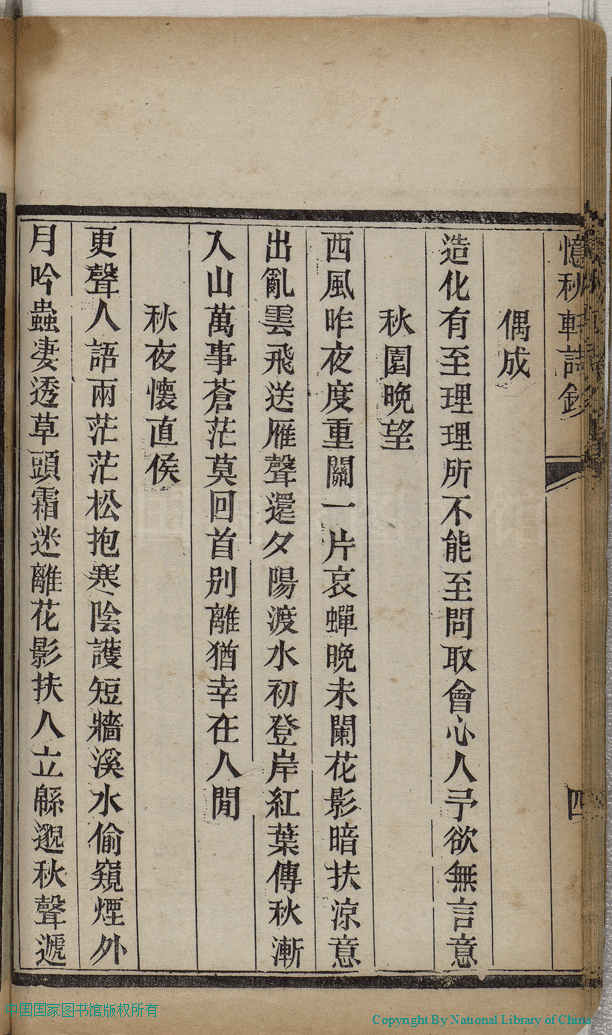 憶秋軒詩鈔
四
偶成
造化有至理理所不能至問取會心人予欲無言意
秋園晚望
西風昨夜度重關一片哀蟬晚未闌花影暗扶涼意
出亂雲飛送雁聲還夕陽渡水初登岸紅葉傳秋漸
入山萬事蒼茫莫回首別離猶幸在人間
秋夜懷直侯
更聲人語兩茫茫松抱寒陰護短牆溪水偷窺煙外
月吟蟲凄透草頭霜迷離花影扶人立緜邈秋聲遞
中国国家图书馆版权所有
Copyright By National Library of China